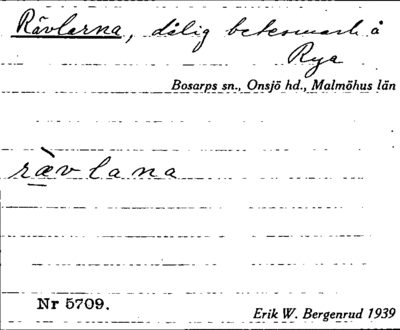 Rävlarna, dålig betesmark å
Rya
Bosarps sn., Onsjö hd., Malmöhus län
rævlana
Nr 5709.
Erik W. Bergenrud 1939